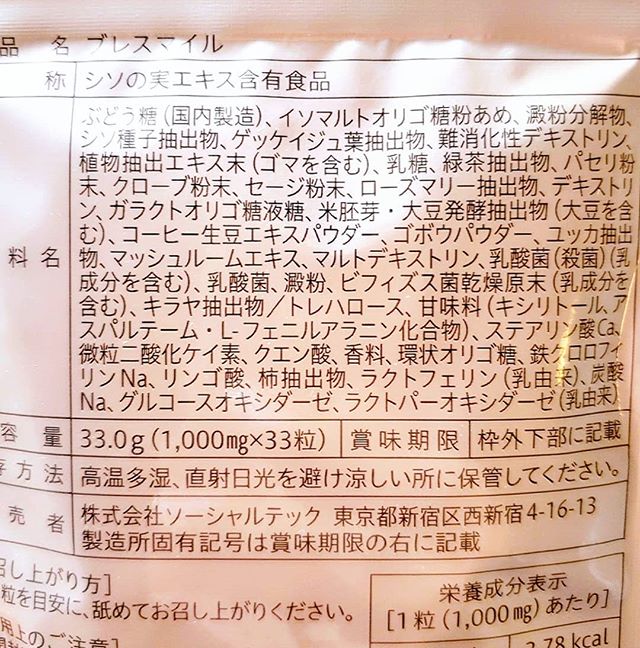 品 名 ブレスマイル
称 シソの実エキス含有食品
ぶどう糖(国内製造)、イソマルトオリゴ糖粉あめ、澱粉分解物、
シソ種子抽出物、ゲッケイジュ葉抽出物、難消化性デキストリン、
植物抽出エキス末(ゴマを含む)、乳糖、緑茶抽出物、パセリ粉
末、クローブ粉末、セージ粉末、ローズマリー抽出物、デキストリ
ン、ガラクトオリゴ糖液糖、米胚芽・大豆発酵抽出物(大豆を含
む)、コーヒー生豆エキスパウダー、ゴボウパウダー、ユッカ抽出
料名 物、マッシュルームエキス、マルトデキストリン、乳酸菌(殺菌)(乳
成分を含む)、乳酸菌、澱粉、ビフィズス菌乾燥原末(乳成分を
含む)、キラヤ抽出物/トレハロース、甘味料(キシリトール、ア
スパルテーム・L-フェニルアラニン化合物)、ステアリン酸Ca、
微粒二酸化ケイ素、クエン酸、香料、環状オリゴ糖、鉄クロロフィ
リンNa、リンゴ酸、柿抽出物、ラクトフェリン(乳由来)、炭酸
Na、グルコースオキシダーゼ、ラクトパーオキシダーゼ(乳由来)
容量 33.0g(1,000mg×33粒) 賞味期限 枠外下部に記載
存方法 高温多湿、直射日光を避け涼しい所に保管してください。
売者 株式会社ソーシャルテック 東京都新宿区西新宿4-16-13
製造所固有記号は賞味期限の右に記載
召し上がり方]
粒を目安に、舐めてお召し上がりください。
用上のご注意]
栄養成分表示
[1粒(1,000mg)あたり]
3.78 kcal